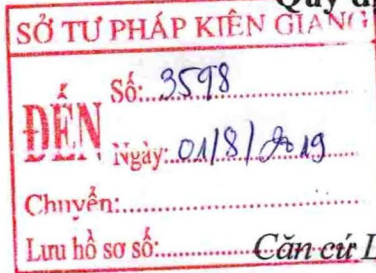 Quy đị
SỞ TƯ PHÁP KIÊN GIANG
ĐẾN
Số:...3598
Ngày:...01/8/2019
Chuyển:
Lưu hồ sơ số:
Căn cứ L